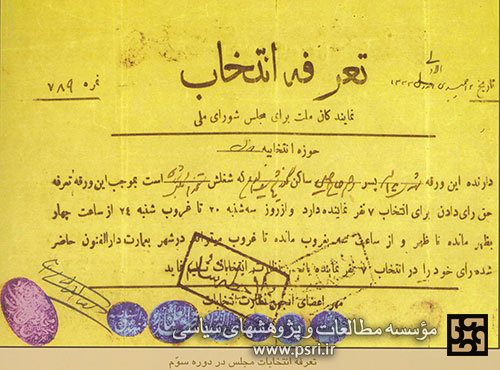 تعرفه انتخاب
تاریخ ۱۲ جمیدی الاولی ۱۳۳۲
نمره ۷۸۹
نمایندگان ملت برای مجلس شورای ملی
حوزه انتخابیه
دارنده این ورقه پسر ساکن که شغلش است بموجب این ورقه تعرفه
حق رای دادن برای انتخاب ۷ نفر نماینده دارد و از روز سه شنبه ۲۰ تا غروب شنبه ۲۴ از ساعت چهار
بظهر مانده تا ظهر و از ساعت سه بغروب مانده تا غروب میتواند در شهر بعمارت دارالفنون حاضر
شده رای خود را در انتخاب ۷ نفر نماینده بانجمن نظارت انتخابات
مهر اعضای انجمن نظارت انتخابات
مؤسسه مطالعات و پژوهشهای سیاسی
www.psri.ir
تعرفه انتخابات مجلس در دوره سوّم